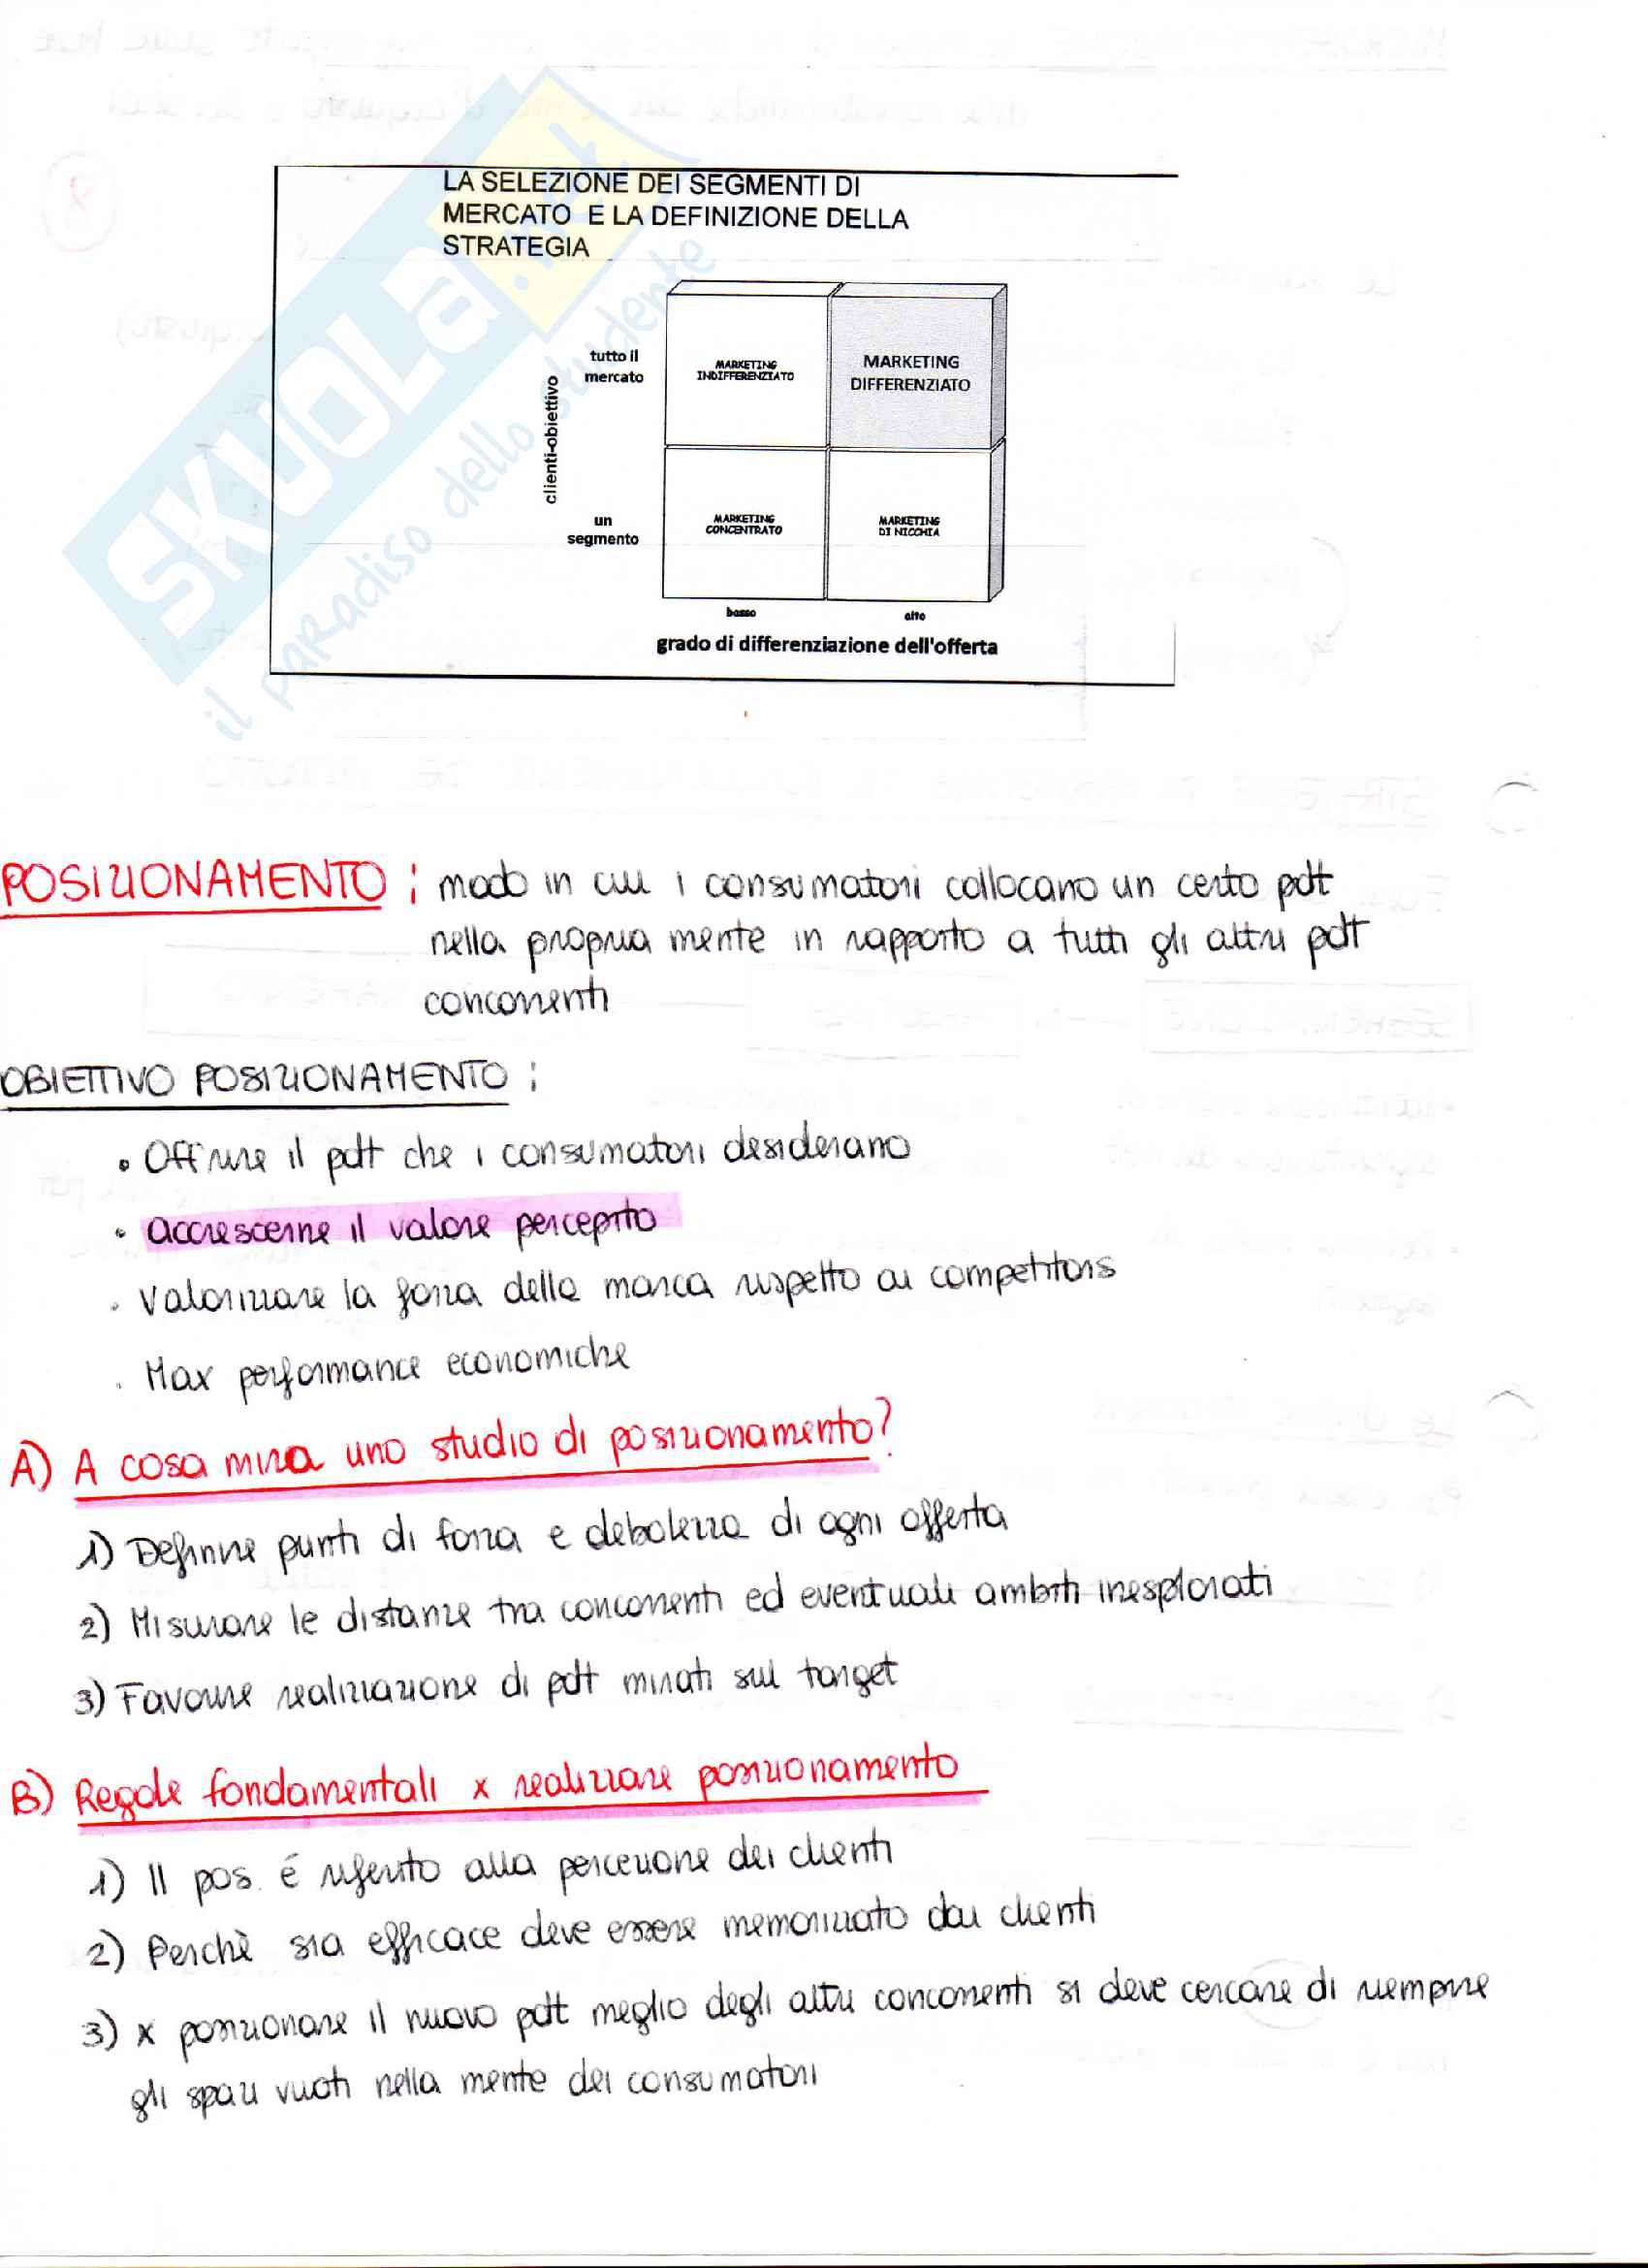 LA SELEZIONE DEI SEGMENTI DI
MERCATO E LA DEFINIZIONE DELLA
STRATEGIA
tutto il
mercato
MARKETING
INDIFFERENZIATO
MARKETING
DIFFERENZIATO
clienti-obiettivo
un
segmento
MARKETING
CONCENTRATO
MARKETING
DI NICCHIA
basso
alto
grado di differenziazione dell'offerta
SKUOLA.net
il paradiso dello studente
POSIZIONAMENTO : modo in cui i consumatori collocano un certo pdt
nella propria mente in rapporto a tutti gli altri pdt
concorrenti
OBIETTIVO POSIZIONAMENTO :
• Offrire il pdt che i consumatori desiderano
• Accrescerne il valore percepito
• Valorizzare la forza della marca rispetto ai competitors
• Max performance economiche
A) A cosa mira uno studio di posizionamento?
1) Definire punti di forza e debolezza di ogni offerta
2) Misurare le distanze tra concorrenti ed eventuali ambiti inesplorati
3) Favorire realizzazione di pdt mirati sul target
B) Regole fondamentali x realizzare posizionamento
1) Il pos. é riferito alla percezione dei clienti
2) Perchè sia efficace deve essere memorizzato dai clienti
3) x posizionare il nuovo pdt meglio degli altri concorrenti si deve cercare di riempire
gli spazi vuoti nella mente dei consumatori